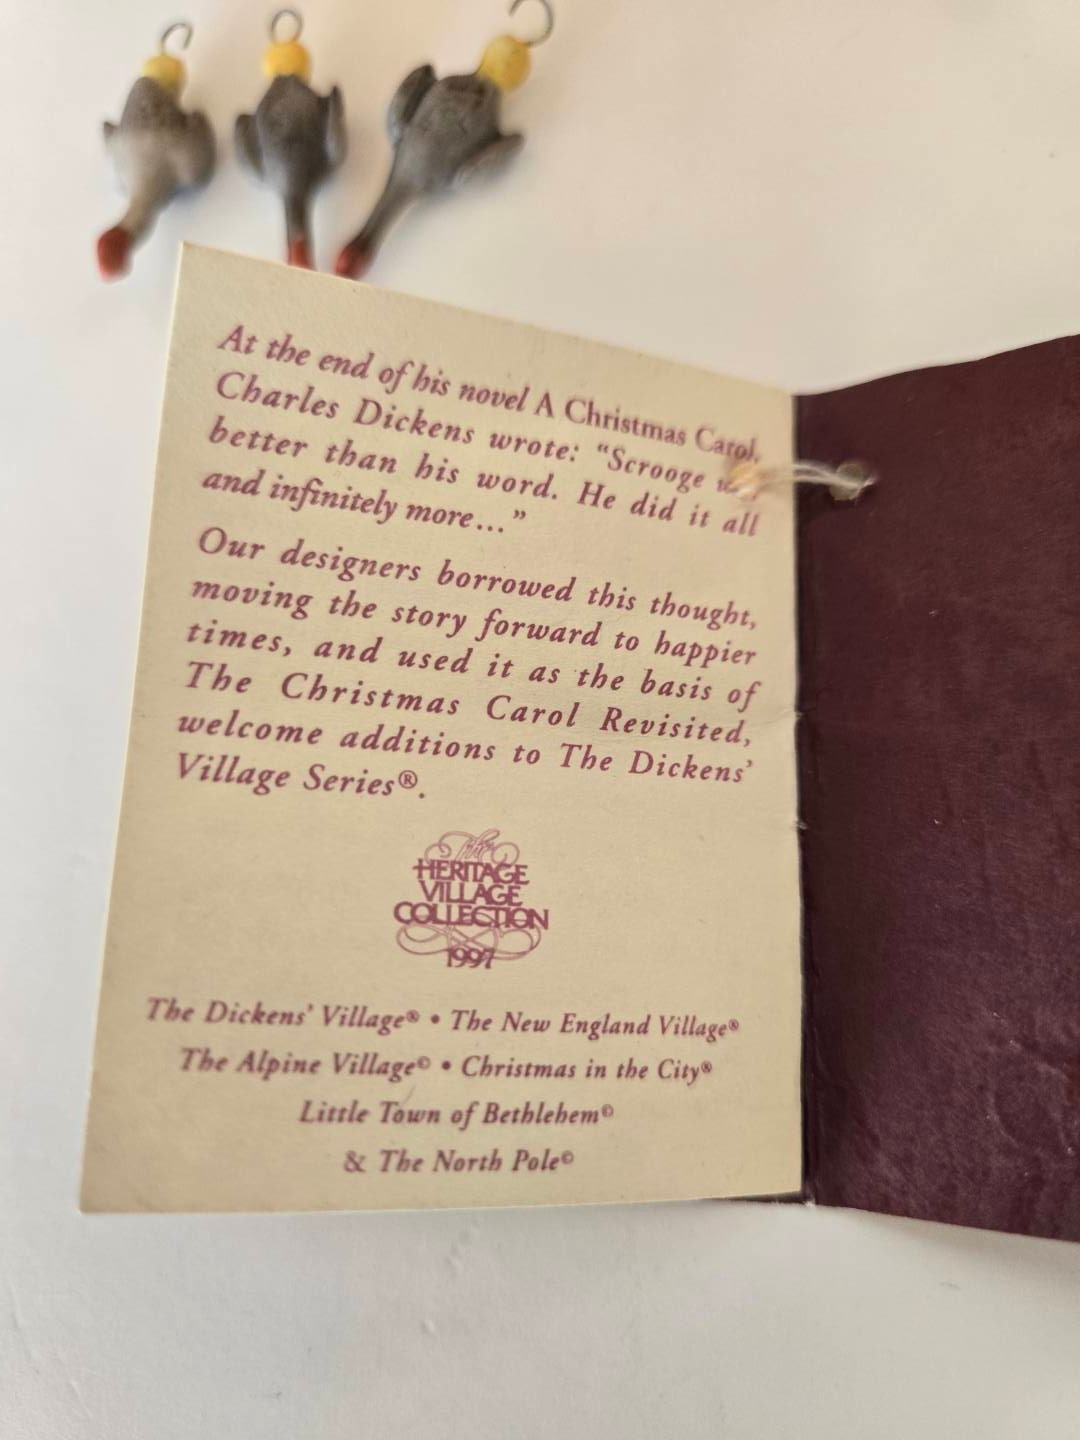 At the end of his novel A Christmas Carol,
Charles Dickens wrote: “Scrooge
better than his word. He did it all
and infinitely more...”
Our designers borrowed this thought,
moving the story forward to happier
times, and used it as the basis of
The Christmas Carol Revisited,
welcome additions to The Dickens’
Village Series®.
The
HERITAGE
VILLAGE
COLLECTION
1997
The Dickens’ Village® • The New England Village®
The Alpine Village© • Christmas in the City®
Little Town of Bethlehem©
& The North Pole©